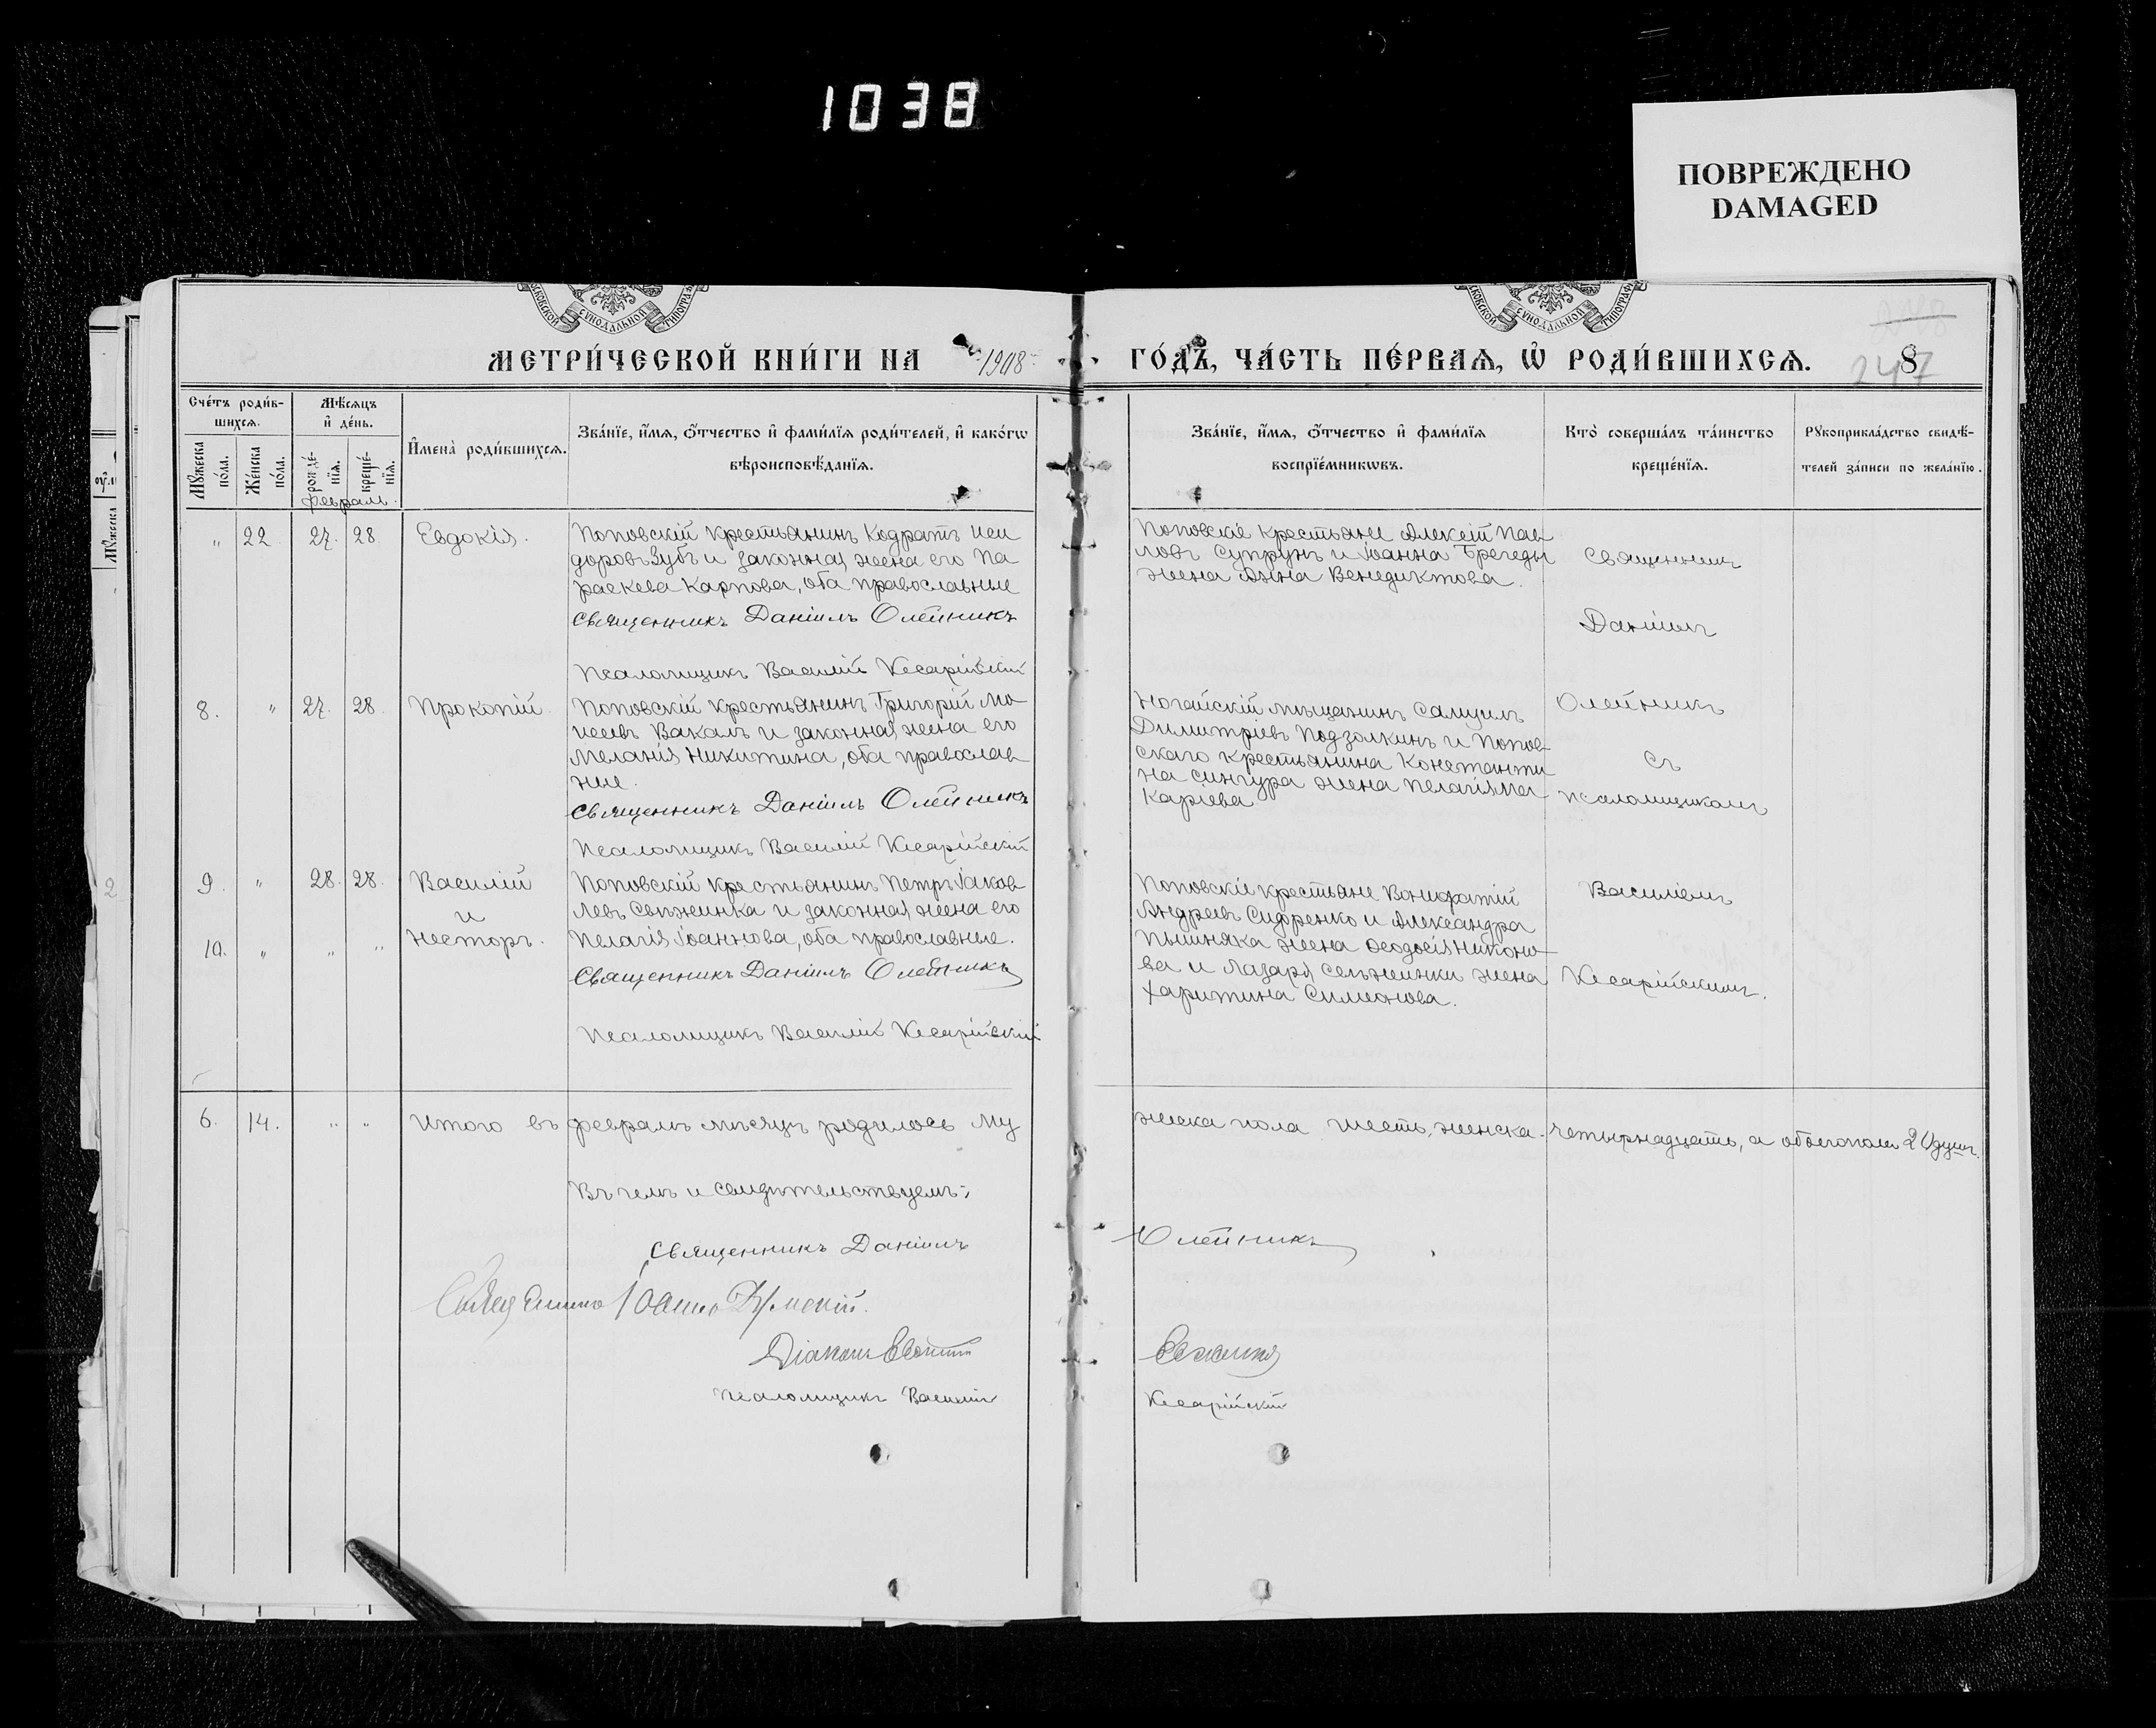 1038
ПОВРЕЖДЕНО
DAMAGED
МЕТРИ́ЧЕСКОЙ КНИ́ГИ НА 1908 ГО́ДЪ, ЧА́СТЬ ПЕ́РВАЯ, Ѽ РОДИ́ВШИХСЯ.
247
8
Сче́тъ роди́в-
шихся.
Мѣ́сяцъ
и҆ де́нь.
Мꙋ́жеска по́ла.
Же́нска по́ла.
рожде́-нїя.
креще́-нїя.
И҆мена̀ роди́вшихся.
Зва́нїе, и҆́мя, ѻ҆́тчество и҆ фами́лїя роди́телей, и҆ како́гѡ
вѣроисповѣ́данїя.
Зва́нїе, и҆́мя, ѻ҆́тчество и҆ фами́лїя
воспрїе́мникѡвъ.
Кто̀ соверша́лъ та́инство
креще́нїя.
Рꙋкоприкла́дство свидѣ́-
телей за́писи по жела́нїю.
Февраль
„ 22 27. 28 Евдокія.
Поповскій крестьянинъ Кодратъ Иси
доровъ Зубъ и законная жена его Па
раскева Карпова, оба православные
Священникъ Даніилъ Олейникъ
Псаломщикъ Василій Кесарійскій
Поповскіе крестьяне Алексій Пав
ловъ Супрунъ и Іоанна Брегеды
жена Анна Венедиктова.
8. „ 27. 28 Прокопій
Поповскій крестьянинъ Григорій Мо
исеевъ Вакалъ и законная жена его
Меланія Никитина, оба православ
ные.
Священникъ Даніилъ Олейникъ
Псаломщикъ Василій Кесарійскій
Ногайскій мѣщанинъ Самуилъ
Димитріевъ Подзолкинъ и Попов-
скаго крестьянина Константи
на Сингура жена Пелагія Ма-
каріева
9. „ 28. 28. Василій
и
10. „ „ „ Несторъ.
Поповскій крестьянинъ Петръ Іаков
левъ Свѣжинка и законная жена его
Пелагія Іоаннова, оба православные.
Священникъ Даніилъ Олейникъ
Псаломщикъ Василій Кесарійскій
Поповскіе крестьяне Вонифатій
Андреевъ Сидоренко и Александра
Пышняка жена Ѳеодосія Никоно-
ва и Лазаря Свѣжинки жена
Харитина Симеонова.
Священникъ
Даніилъ
Олейникъ
съ
псаломщикомъ
Василіемъ
Кесарійскимъ.
6. 14. „ „ Итого въ февралѣ мѣсяцѣ родилось му
жеска пола шесть, женска - четырнадцать, а обоего пола 20 душъ.
Въ чемъ и свидѣтельствуемъ:
Священникъ Даніилъ Олейникъ
Діаконъ
Псаломщикъ Василій Кесарійскій
2